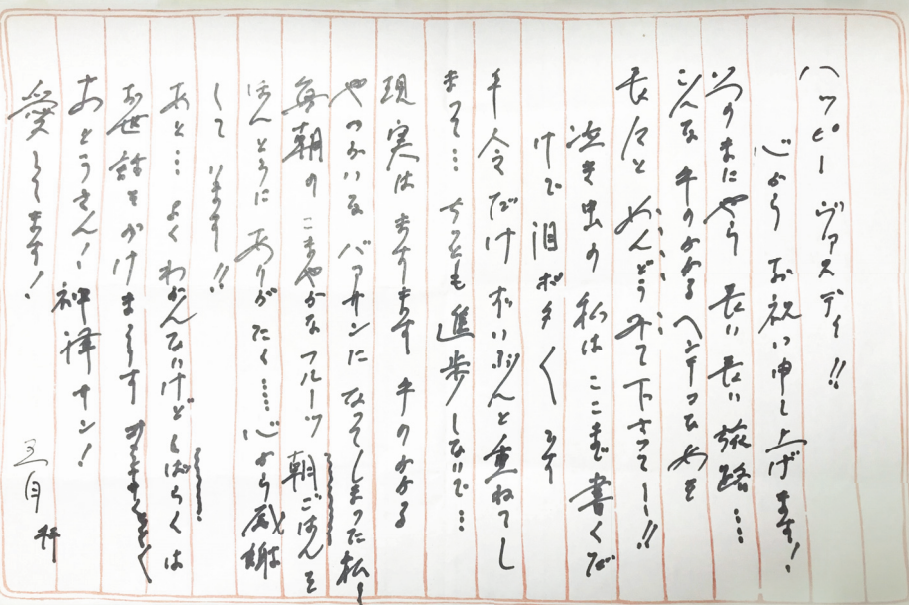 ハッピーヴァスディ!!
心からお祝い申し上げます!
いつのまにやら長い長い旅路…
こんな手のかかるヘンテコな女を
長々とめんどうみて下さってー!!
泣き虫の私はここまで書くだ
けで泪ポタポタです
年令だけずいぶんと重ねてし
まって…ちっとも進歩しないで…
現実はますます手のかかる
やっかいなバアサンになってしまった私!
毎朝のこまやかなフルーツ朝ごはんを
ほんとうにありがたく……心から感謝
しています!!
あと…よくわかんないけどしばらくは
お世話をかけまーす
おとうさん!神様サン!
愛してます!
三月